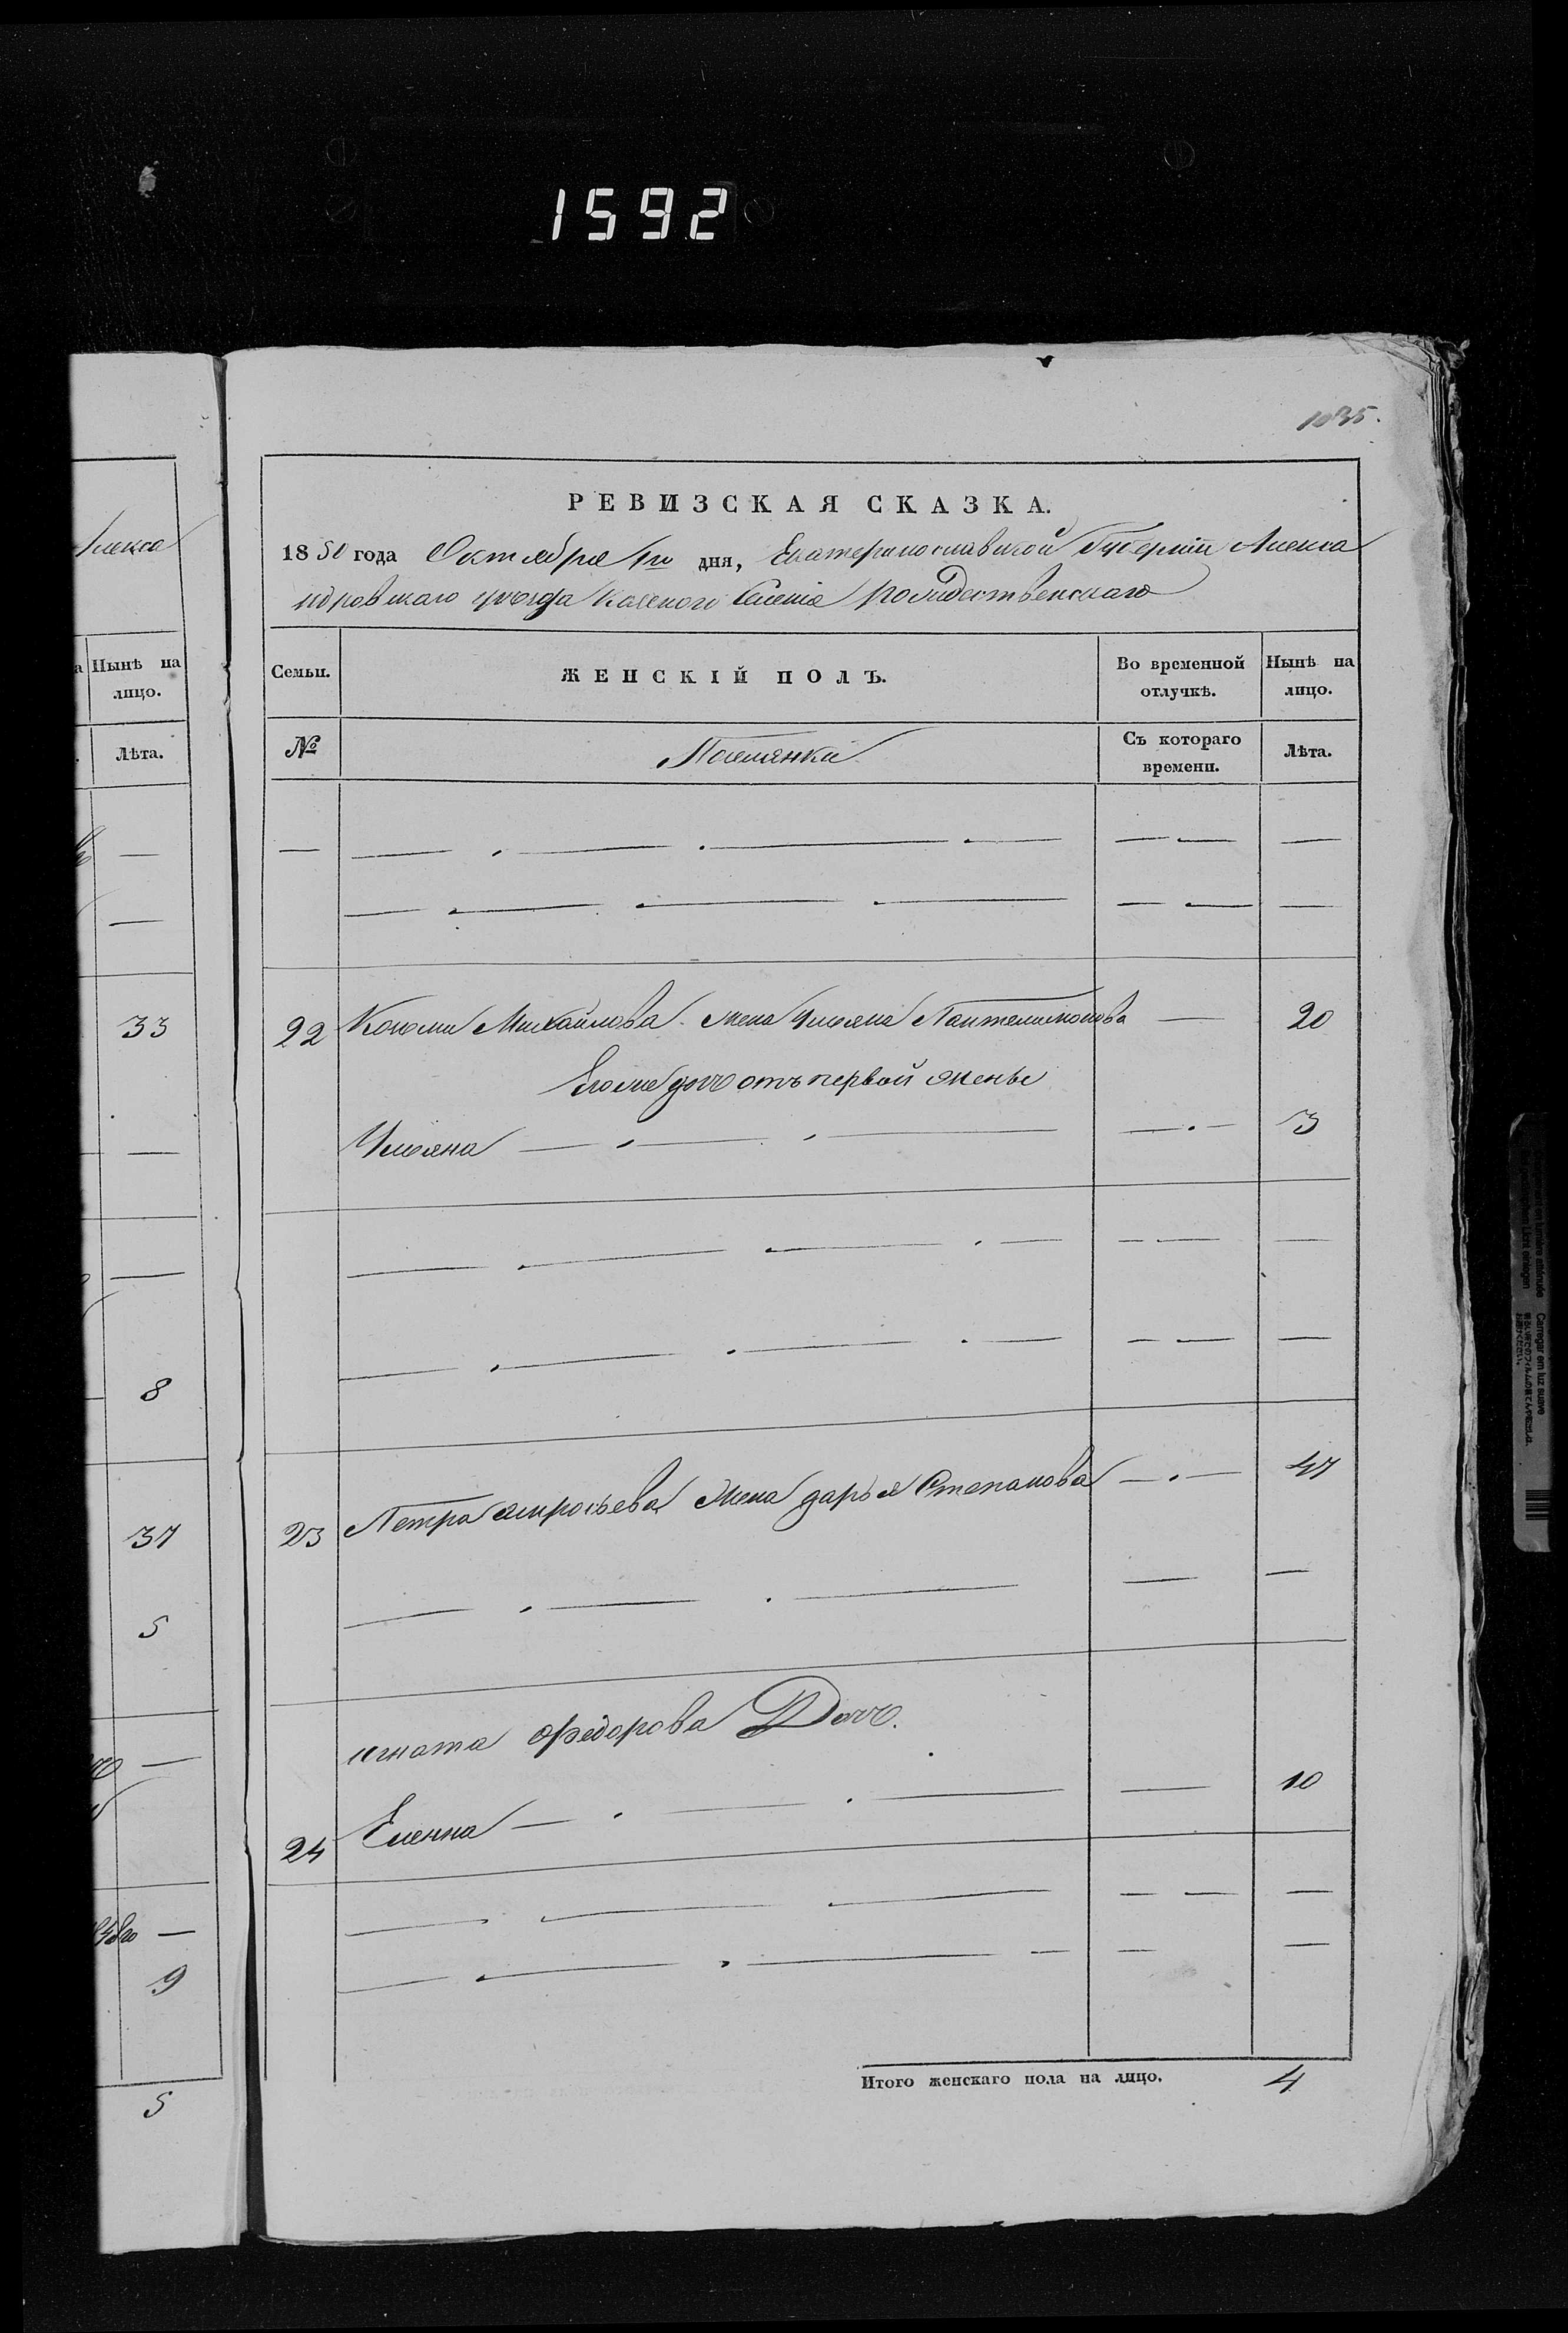 1592
1035.
Алекса
Нынѣ на
лицо.
Лѣта.
33
8
37
5
9
5
РЕВИЗСКАЯ СКАЗКА.
1850 года Октября 1го дня, Екатеринославской Губернии Алекса
ндровскаго уѣзда Казеного Селенія Рождественскаго
Семьи. ЖЕНСКІЙ ПОЛЪ. Во временной отлучкѣ. Нынѣ на лицо.
№ Съ котораго времени. Лѣта.
22 Михайлова жена Ульяна Пантелимонова — 20
Его же дочь отъ первой жены
Ульяна — 3
23 Петра жена дарья Степанова — 47
игната Федорова Дочь.
24 Еленна — 10
Итого женскаго пола на лицо. 4